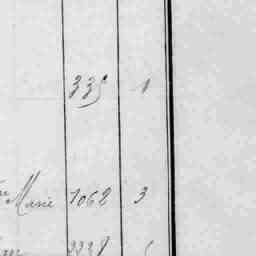 335 1
Marie 1062 3
2238